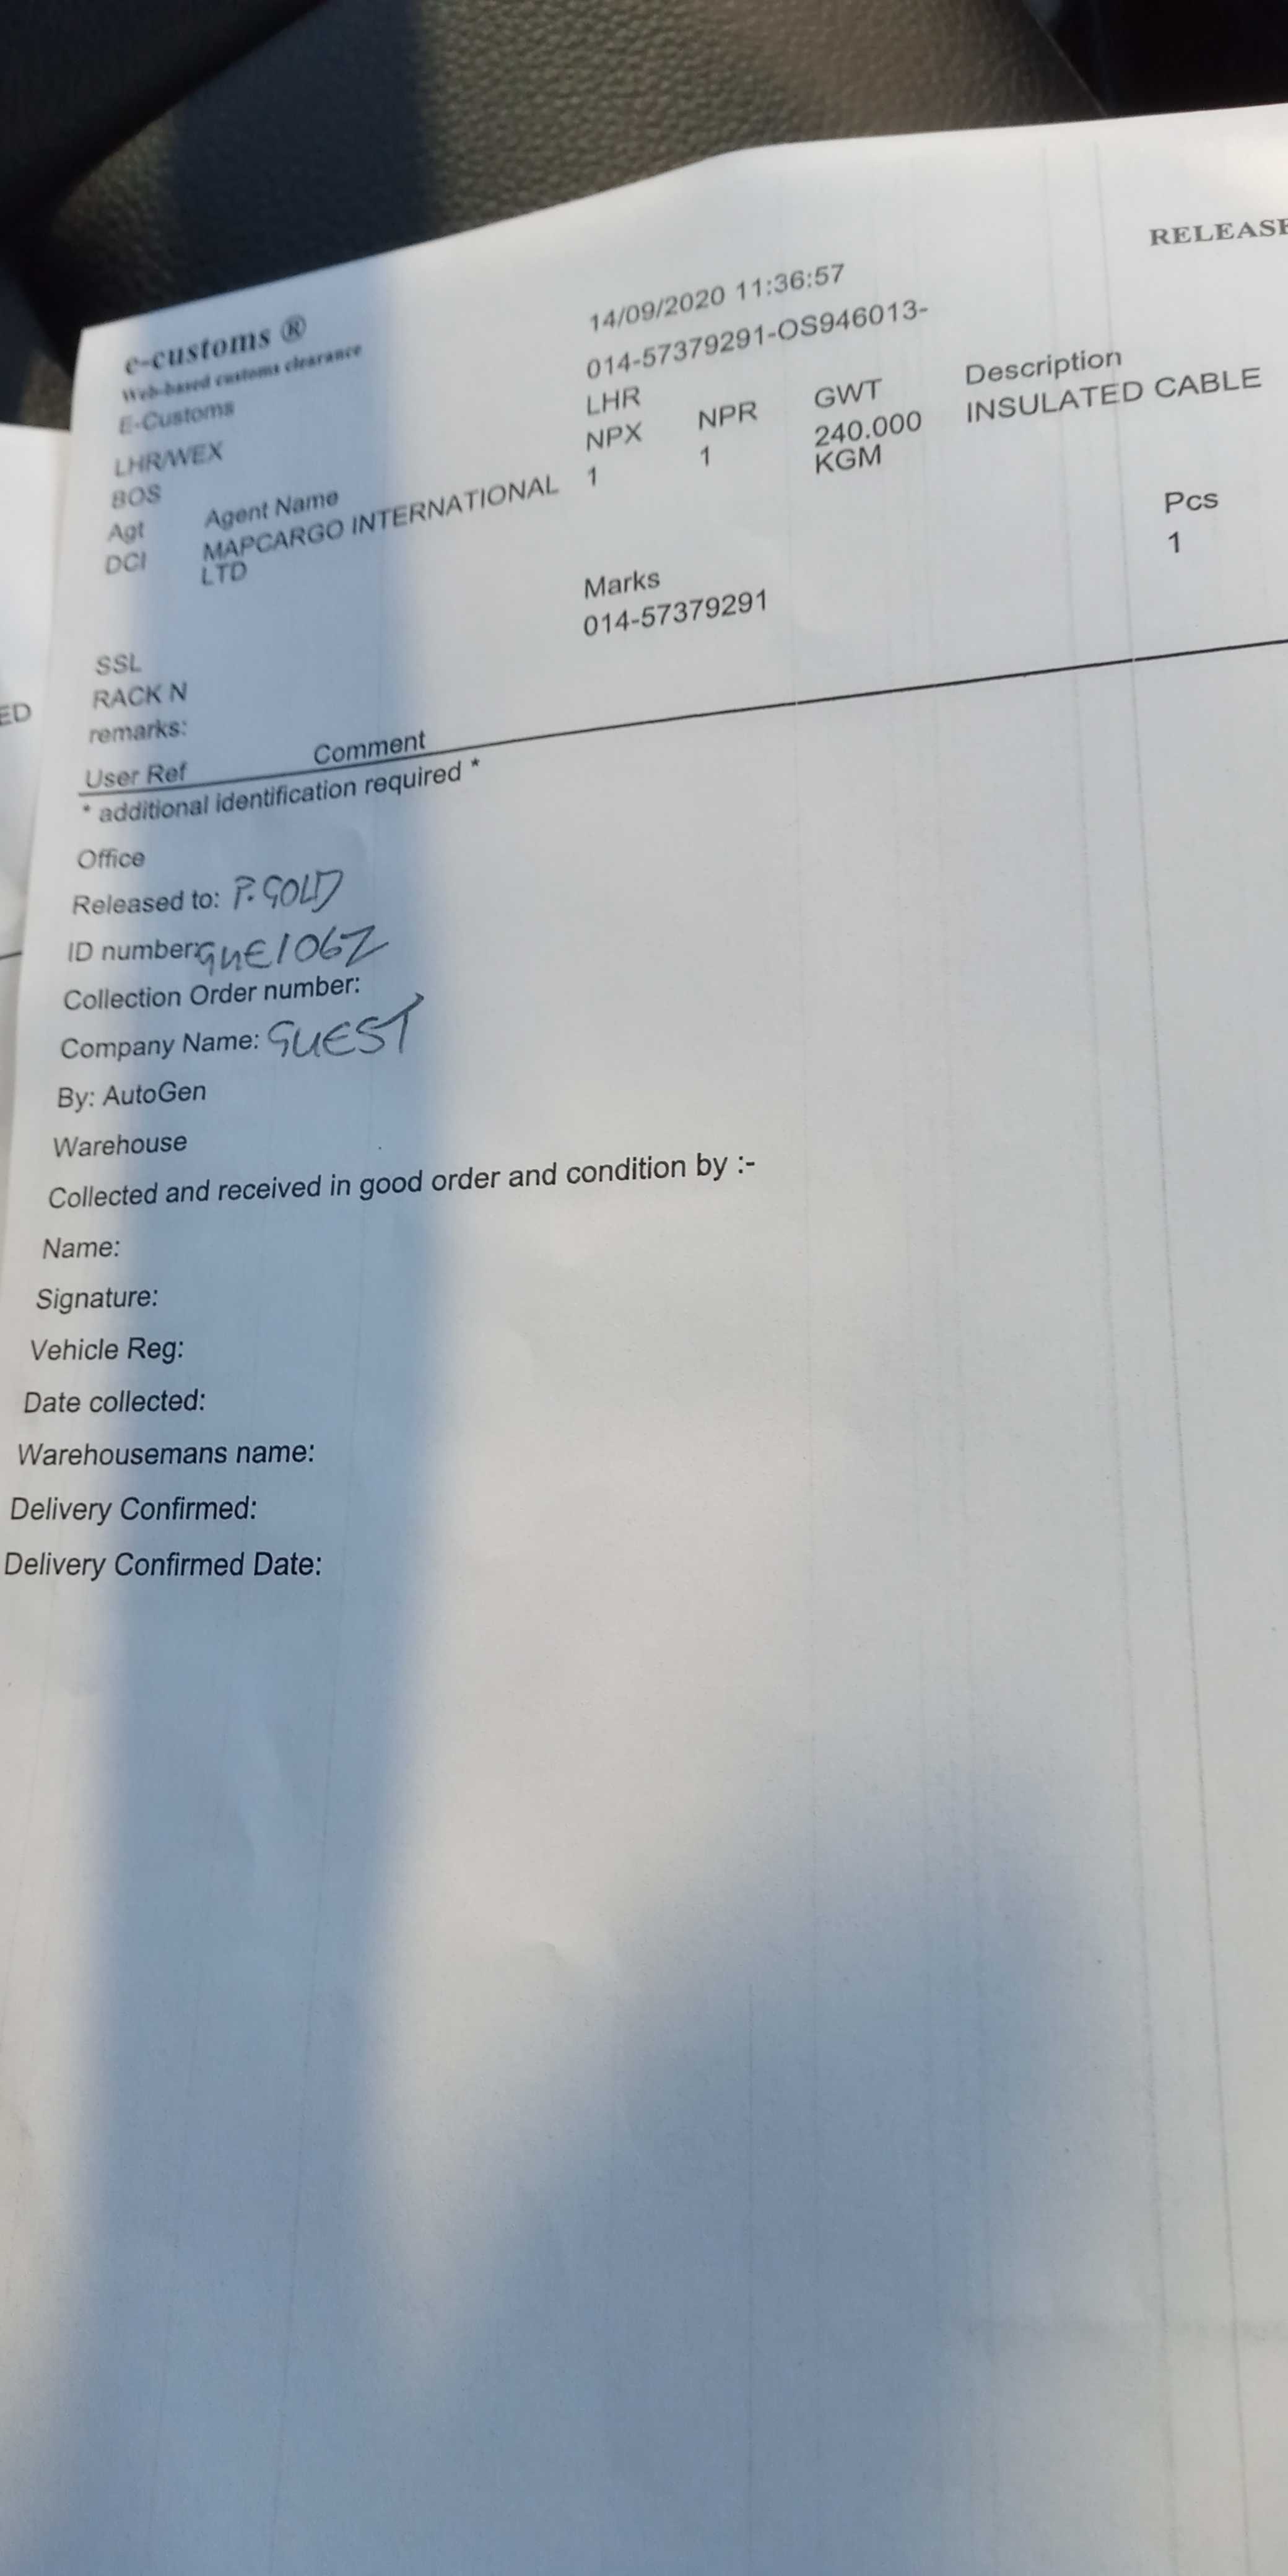 RELEASE
e-customs ®
Web-based customs clearance
E-Customs 14/09/2020 11:36:57
LHR/WEX 014-57379291-OS946013-
BOS LHR
Agt Agent Name NPX NPR GWT Description
DCI MAPCARGO INTERNATIONAL 1 1 240.000 INSULATED CABLE
LTD KGM
Marks Pcs
014-57379291 1
SSL
RACK N
ED
remarks:
User Ref Comment
* additional identification required *
Office
Released to: P. GOLD
ID number: GUE1062
Collection Order number:
Company Name: GUEST
By: AutoGen
Warehouse
Collected and received in good order and condition by :-
Name:
Signature:
Vehicle Reg:
Date collected:
Warehousemans name:
Delivery Confirmed:
Delivery Confirmed Date: